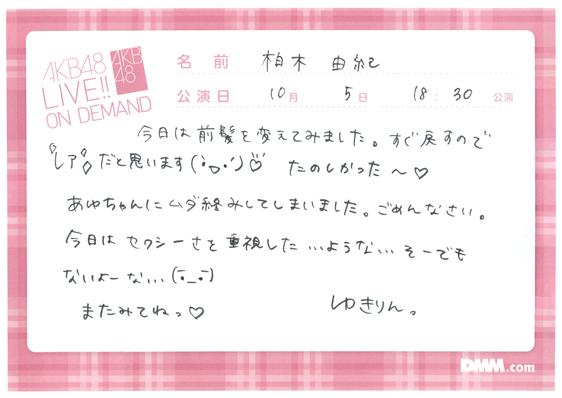 AKB48
LIVE!!
ON DEMAND
AKB
48
名前 柏木 由紀
公演日 10月 5日 18:30 公演
今日は前髪を変えてみました。すぐ戻すので
"レア"だと思います(•̀ᴗ•́)♡ たのしかった〜♡
あゆちゃんにムダ絡みしてしまいました。ごめんなさい。
今日はセクシーさを重視した…ような… そーでも
ないよーな…(￣_￣)
またみてねっ♡ ゆきりん。
DMM.com